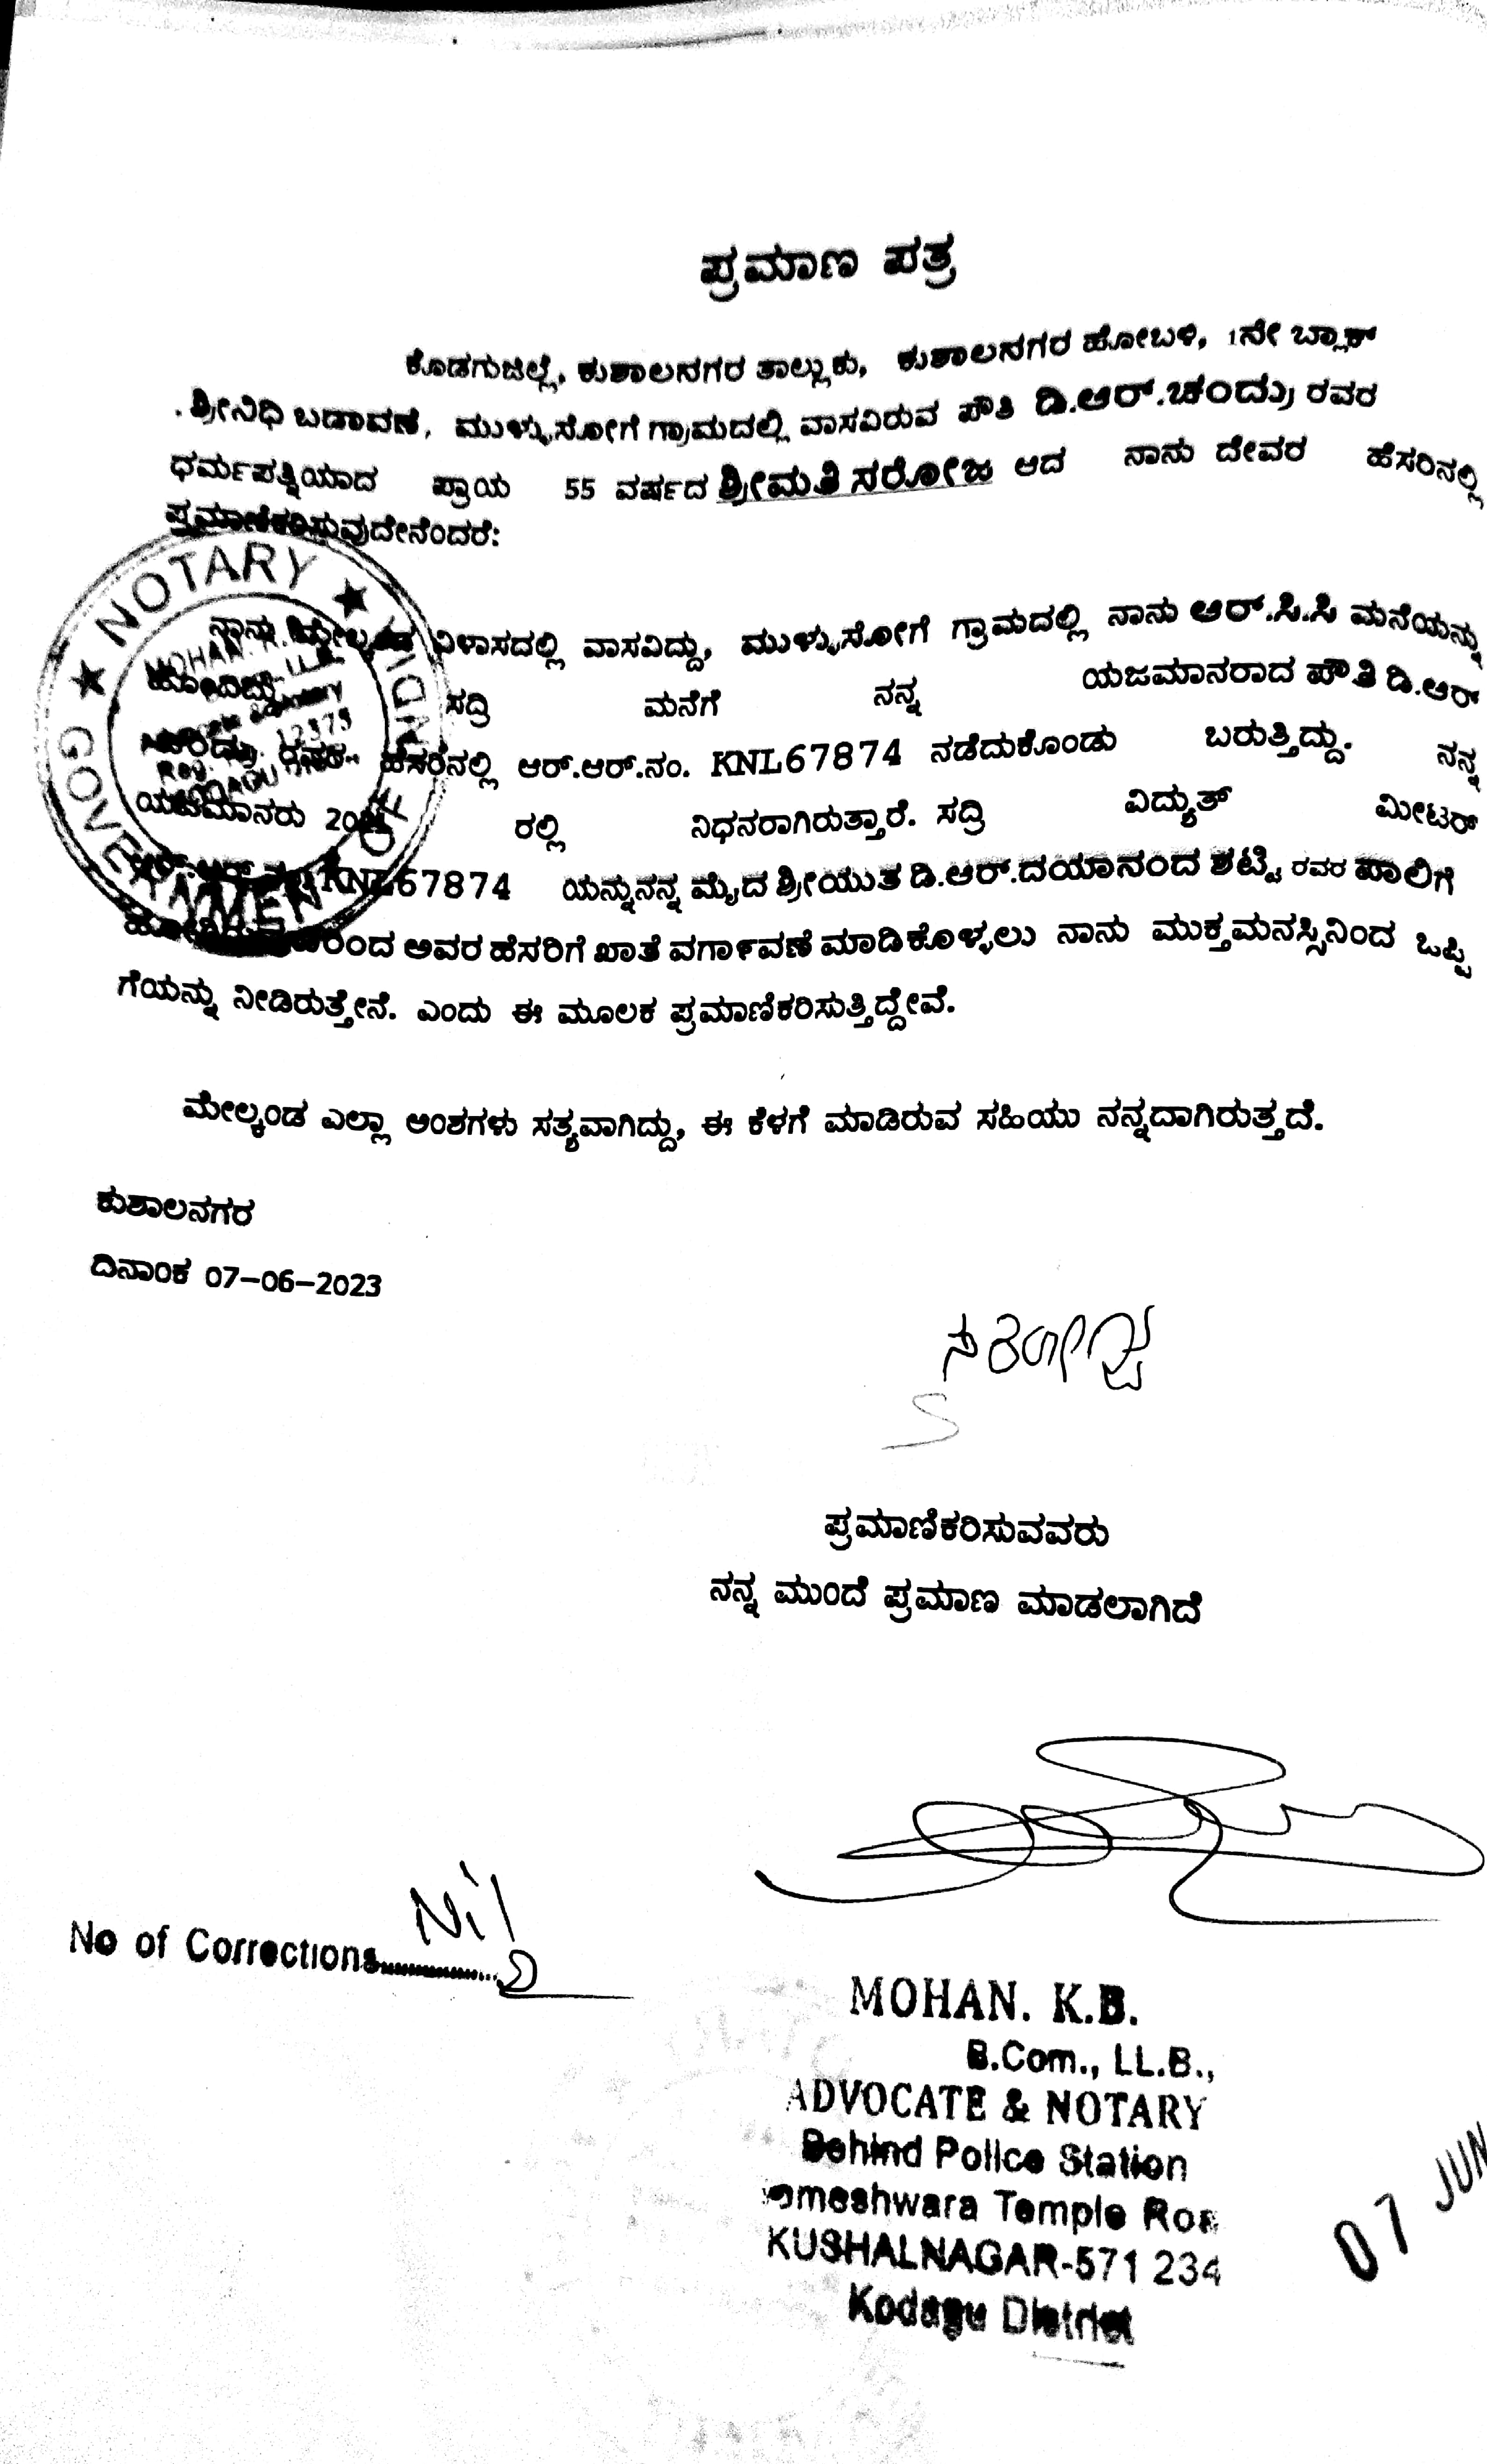 ಪ್ರಮಾಣ ಪತ್ರ
ಕೊಡಗುಜಿಲ್ಲೆ, ಕುಶಾಲನಗರ ತಾಲ್ಲುಕು, ಕುಶಾಲನಗರ ಹೋಬಳಿ, 1ನೇ ಬ್ಲಾಕ್
. ಶ್ರೀನಿಧಿ ಬಡಾವಣೆ, ಮುಳ್ಳುಸೋಗೆ ಗ್ರಾಮದಲ್ಲಿ ವಾಸವಿರುವ ಪೌತಿ ಡಿ.ಆರ್.ಚಂದ್ರು ರವರ
ಧರ್ಮಪತ್ನಿಯಾದ ಪ್ರಾಯ 55 ವರ್ಷದ ಶ್ರೀಮತಿ ಸರೋಜ ಆದ ನಾನು ದೇವರ ಹೆಸರಿನಲ್ಲಿ
ಪ್ರಮಾಣಿಕರಿಸುವುದೇನೆಂದರೆ:
ನಾನು ವಿಳಾಸದಲ್ಲಿ ವಾಸವಿದ್ದು, ಮುಳ್ಳುಸೋಗೆ ಗ್ರಾಮದಲ್ಲಿ ನಾನು ಆರ್.ಸಿ.ಸಿ ಮನೆಯನ್ನು
ಹೊಂದಿದ್ದು ಸದ್ರಿ ಮನೆಗೆ ನನ್ನ ಯಜಮಾನರಾದ ಪೌತಿ ಡಿ.ಆರ್
ಚಂದ್ರು ರವರ ಹೆಸರಿನಲ್ಲಿ ಆರ್.ಆರ್.ನಂ. KNL67874 ನಡೆದುಕೊಂಡು ಬರುತ್ತಿದ್ದು. ನನ್ನ
ಯಜಮಾನರು ರಲ್ಲಿ ನಿಧನರಾಗಿರುತ್ತಾರೆ. ಸದ್ರಿ ವಿದ್ಯುತ್ ಮೀಟರ್
KNL67874 ಯನ್ನುನನ್ನ ಮೈದ ಶ್ರೀಯುತ ಡಿ.ಆರ್.ದಯಾನಂದ ಶಟ್ಟಿ ರವರ ಪಾಲಿಗೆ
ಅವರ ಹೆಸರಿಗೆ ಖಾತೆ ವರ್ಗಾವಣೆ ಮಾಡಿಕೊಳ್ಳಲು ನಾನು ಮುಕ್ತಮನಸ್ಸಿನಿಂದ ಒಪ್ಪಿ
ಗೆಯನ್ನು ನೀಡಿರುತ್ತೇನೆ. ಎಂದು ಈ ಮೂಲಕ ಪ್ರಮಾಣಿಕರಿಸುತ್ತಿದ್ದೇವೆ.
ಮೇಲ್ಕಂಡ ಎಲ್ಲಾ ಅಂಶಗಳು ಸತ್ಯವಾಗಿದ್ದು, ಈ ಕೆಳಗೆ ಮಾಡಿರುವ ಸಹಿಯು ನನ್ನದಾಗಿರುತ್ತದೆ.
ಕುಶಾಲನಗರ
ದಿನಾಂಕ 07-06-2023
ಪ್ರಮಾಣಿಕರಿಸುವವರು
ನನ್ನ ಮುಂದೆ ಪ್ರಮಾಣ ಮಾಡಲಾಗಿದೆ
No of Corrections........... Nil
MOHAN. K.B.
B.Com., LL.B.,
ADVOCATE & NOTARY
Behind Police Station
Temple
KUSHALNAGAR-571 234
Kodagu District
07 JUN
NOTARY